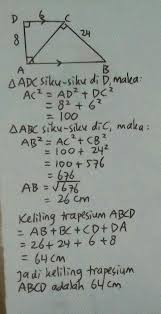 D 6 C
8
24
A B
△ADC siku-siku di D, maka:
AC² = AD² + DC²
= 8² + 6²
= 100
△ABC siku-siku di C, maka:
AB² = AC² + CB²
= 100 + 24²
= 100 + 576
= 676
AB = √676
= 26 cm
Keliling trapesium ABCD
= AB + BC + CD + DA
= 26 + 24 + 6 + 8
= 64 cm
Jadi keliling trapesium
ABCD adalah 64 cm